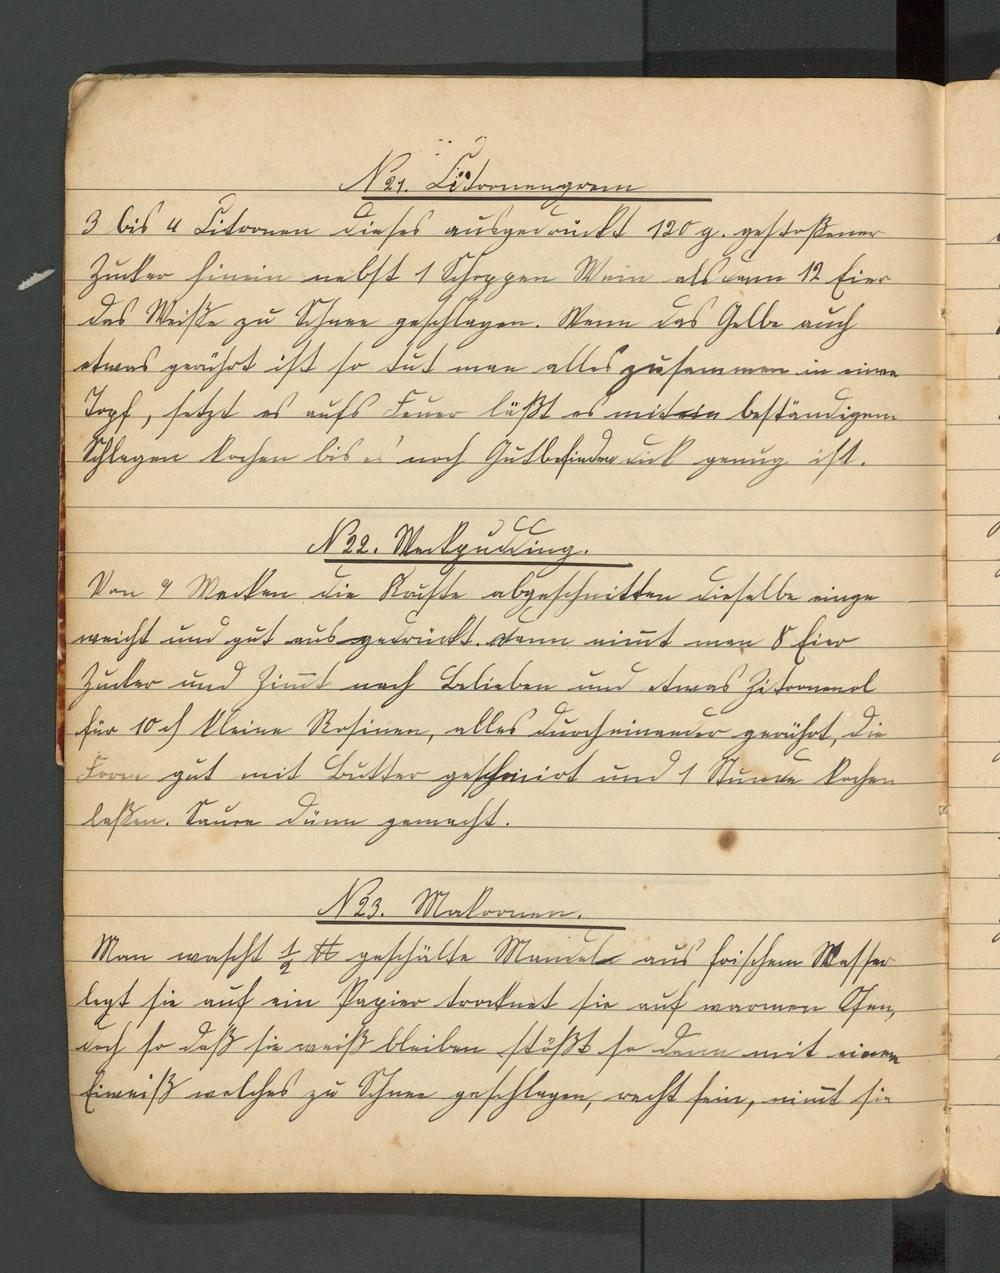 N 21. Citronengrem
3 bis 4 Citronen dieses ausgedrückt 120 g. gestoßener
Zucker hinein nebst 1 Schoppen Wein alsdann 12 Eier
das Weiße zu Schnee geschlagen. Wenn das Gelbe auch
etwas gerührt ist so tut man alles zusammen in einen
Topf, setzt es aufs Feuer läßt es mit beständigem
Schlagen kochen bis es nach Gutbefinden dick genug ist.
N 22. Weckpudding.
Von 9 Wecken die Kruste abgeschnitten dieselbe einge
weicht und gut ausgedrückt. dann nim̅t man 8 Eier
Zucker und Zim̅t nach Belieben und etwas Zitronenol
für 10 ₰ kleine Rosinen, alles durcheinander gerührt, die
Form gut mit Butter geschmirt und 1 Stunde kochen
laßen. Sauce dünn gemacht.
N 23. Makronen.
Man wascht ½ ℔ geschälte Mandel aus frischem Wasser
legt sie auf ein Papier trocknet sie auf warmen Ofen,
doch so daß sie weiß bleiben stößt so dann mit einem
Eiweiß welches zu Schnee geschlagen, recht fein, nim̅t sie